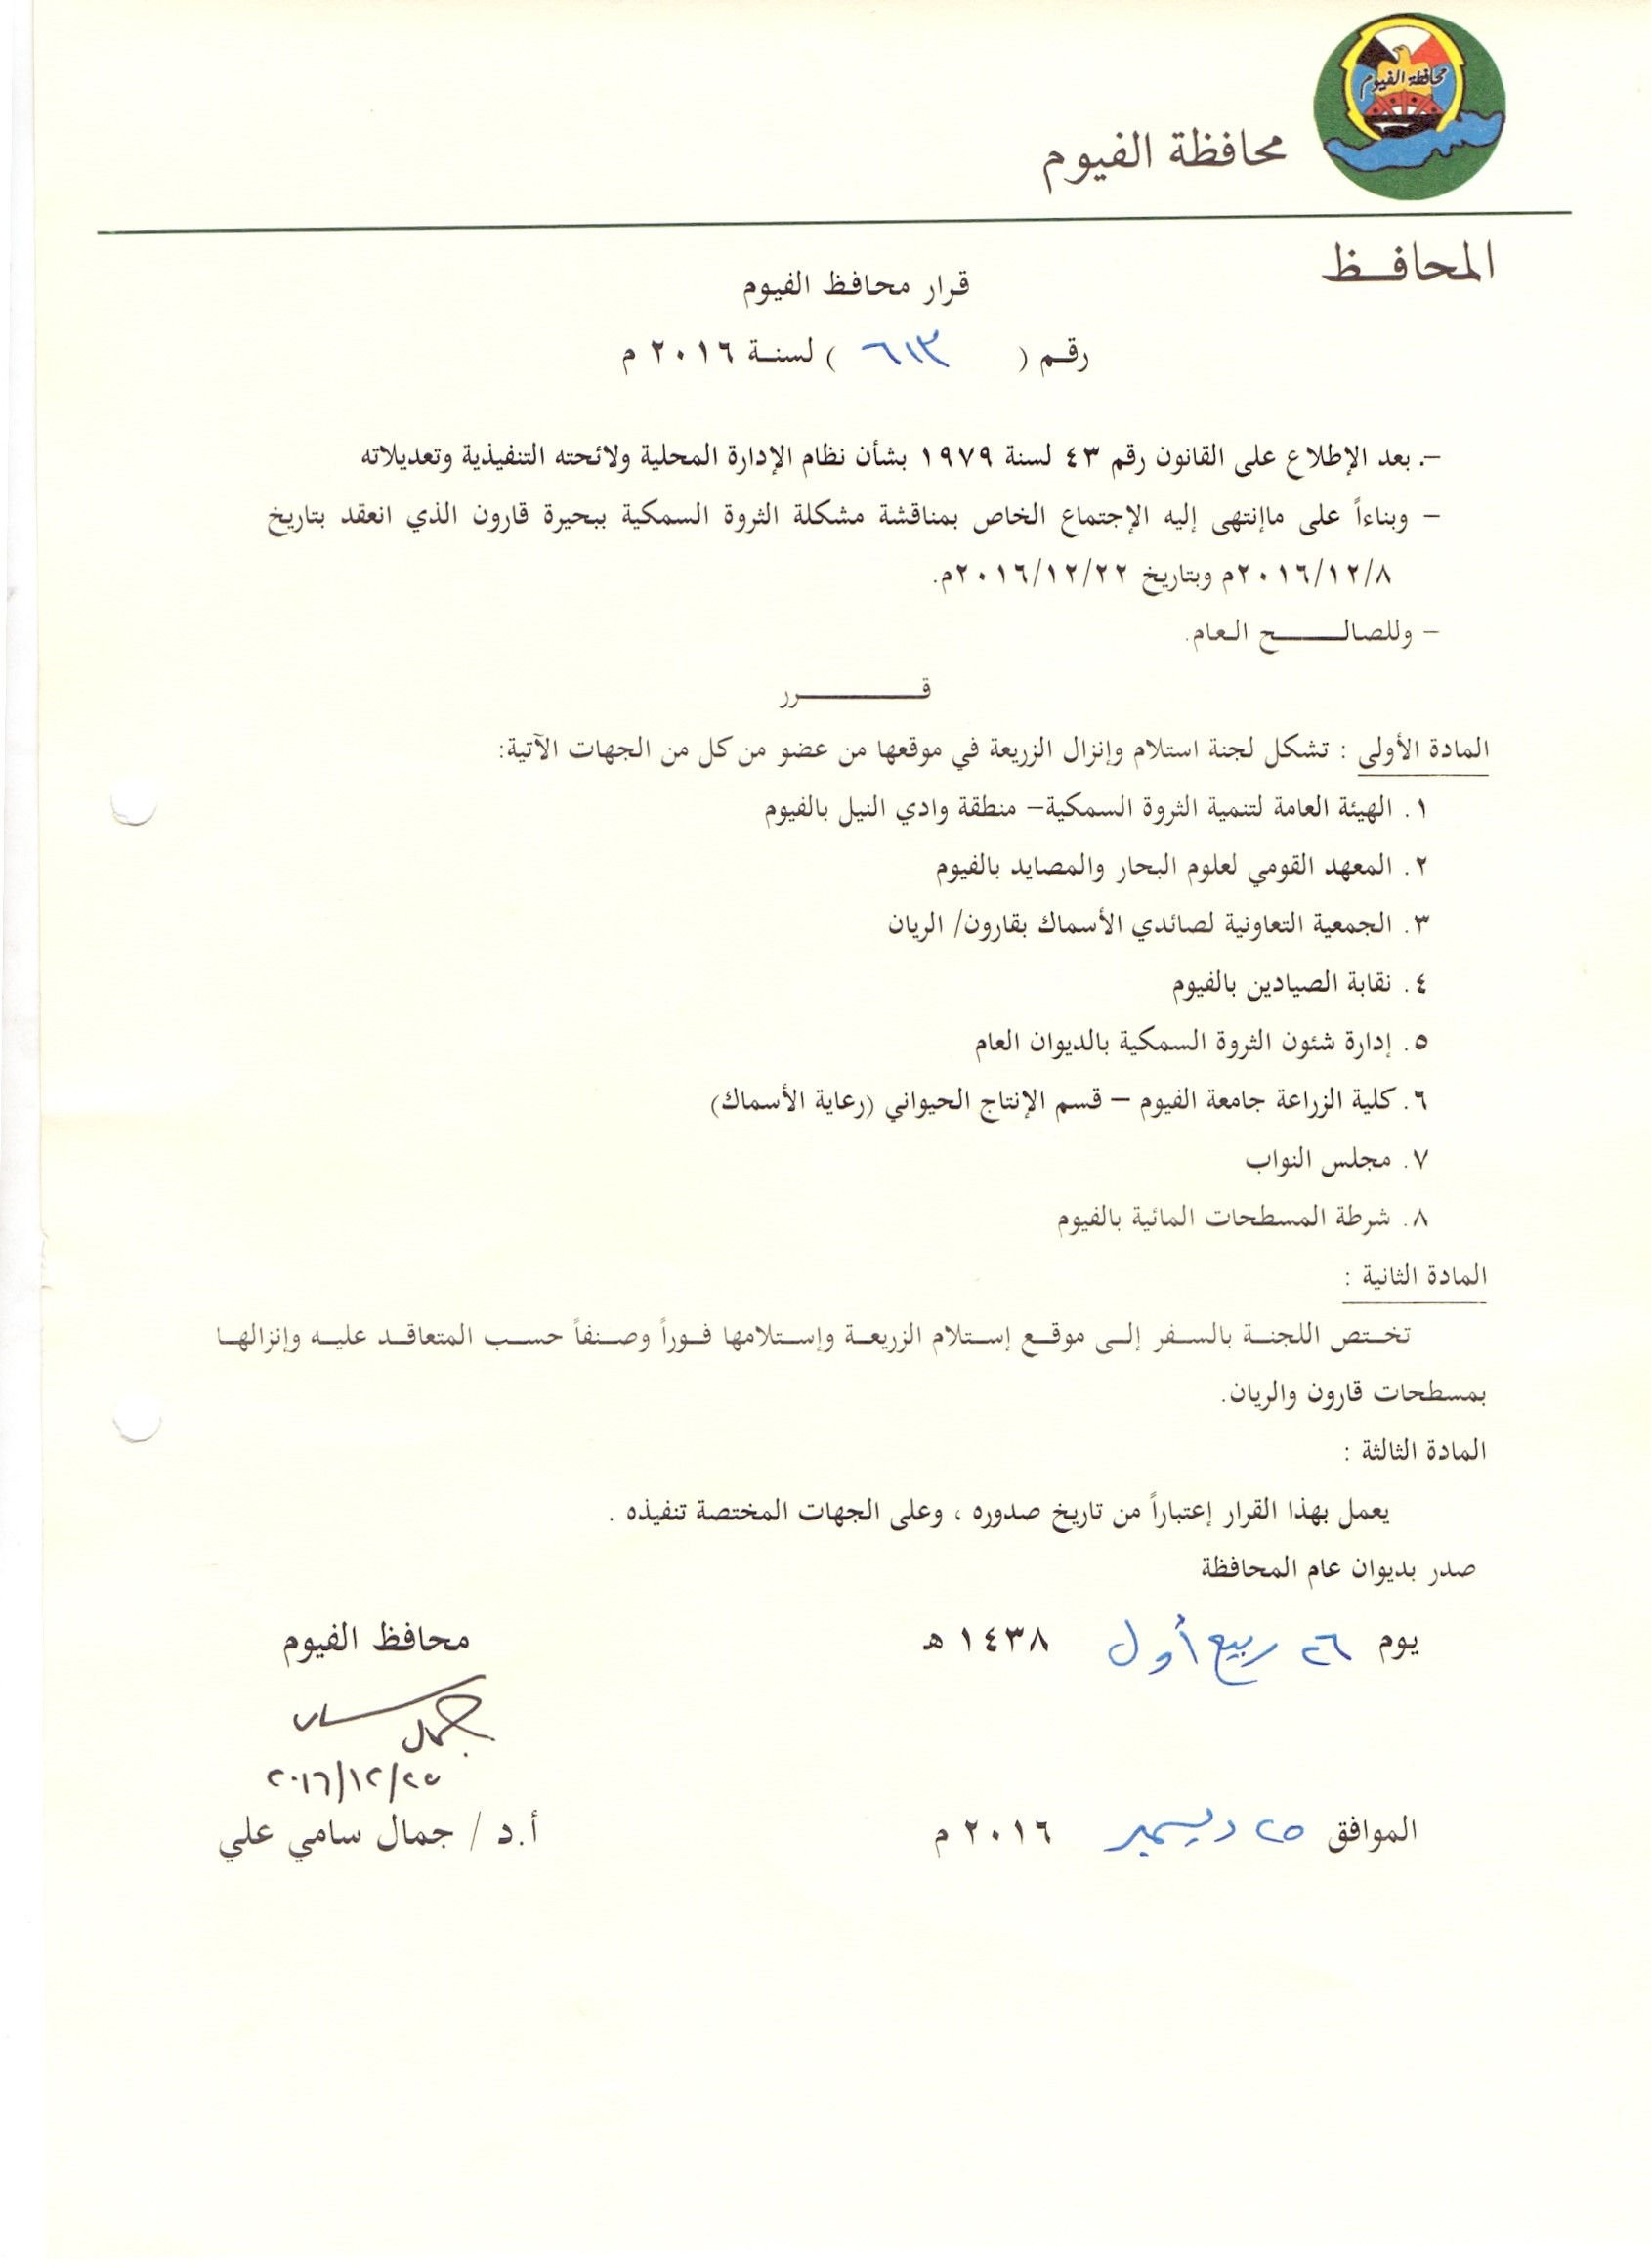 محافظة الفيوم
محافظة الفيوم
المحافـــظ
قرار محافظ الفيوم
رقـم ( ٦١٣ ) لسنـة ٢٠١٦ م
–. بعد الإطلاع على القانون رقم ٤٣ لسنة ١٩٧٩ بشأن نظام الإدارة المحلية ولائحته التنفيذية وتعديلاته
– وبناءاً على ماإنتهى إليه الإجتماع الخاص بمناقشة مشكلة الثروة السمكية ببحيرة قارون الذي انعقد بتاريخ
٢٠١٦/١٢/٨م وبتاريخ ٢٠١٦/١٢/٢٢م.
– وللصالــــــح العام.
قــــــــــرر
المادة الأولى : تشكل لجنة استلام وإنزال الزريعة في موقعها من عضو من كل من الجهات الآتية:
١. الهيئة العامة لتنمية الثروة السمكية– منطقة وادي النيل بالفيوم
٢. المعهد القومي لعلوم البحار والمصايد بالفيوم
٣. الجمعية التعاونية لصائدي الأسماك بقارون/ الريان
٤. نقابة الصيادين بالفيوم
٥. إدارة شئون الثروة السمكية بالديوان العام
٦. كلية الزراعة جامعة الفيوم – قسم الإنتاج الحيواني (رعاية الأسماك)
٧. مجلس النواب
٨. شرطة المسطحات المائية بالفيوم
المادة الثانية :
تخـتص اللجنـة بالسـفر إلـى موقـع إستلام الزريعـة وإستلامها فـوراً وصـنفاً حسـب المتعاقـد عليـه وإنزالهـا
بمسطحات قارون والريان.
المادة الثالثة :
يعمل بهذا القرار إعتباراً من تاريخ صدوره ، وعلى الجهات المختصة تنفيذه .
صدر بديوان عام المحافظة
يوم ٢٦ ربيع أول ١٤٣٨ هـ
محافظ الفيوم
جمال سامى
٢٠١٦/١٢/٢٥
الموافق ٢٥ ديسمبر ٢٠١٦ م
أ.د / جمال سامي علي